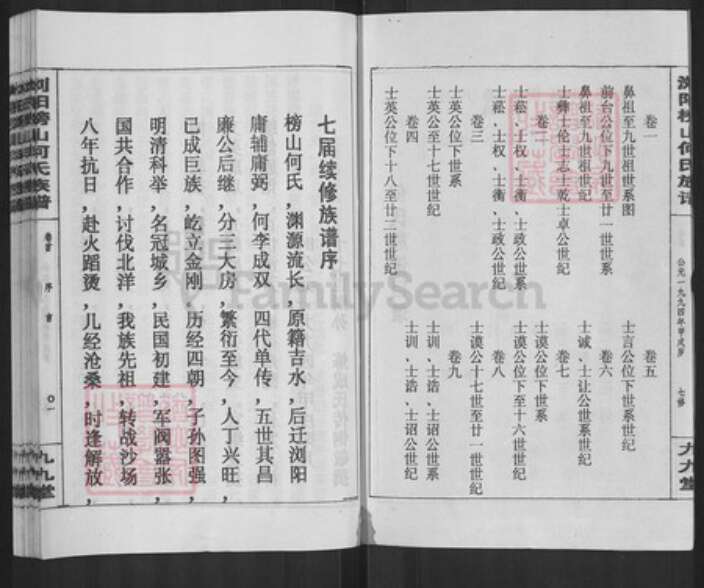 浏阳榜山何氏族谱
公元一九九四年甲戌岁
七修
九九堂
卷一
鼻祖至九世祖世系图
前台公位下九世至廿一世世系
鼻祖至九世祖世纪
士彝士伦士志士乾士卓公世纪
卷二
士菘、士权、士衡、士政公世系
卷三
士菘、士权、士衡、士政公世纪
士英公位下世系
士英公至十七世世纪
卷四
士英公位下十八至廿二世世纪
卷五
士言公位下世系世纪
卷六
士诚、士让公世系世纪
卷七
士谟公位下世系
士谟公位下至十六世世纪
卷八
士谟公十七世至廿一世世纪
卷九
士训、士诰、士诏公世系
士训、士诰、士诏公世纪
七届续修族谱序
榜山何氏,渊源流长,原籍吉水,后迁浏阳
庸辅庸弼,何李成双,四代单传,五世其昌
廉公后继,分三大房,繁衍至今,人丁兴旺,
已成巨族,屹立金刚,历经四朝,子孙图强,
明清科举,名冠城乡,民国初建,军阀嚣张,
国共合作,讨伐北洋,我族先祖,转战沙场
八年抗日,赴火蹈烫,几经沧桑,时逢解放,
浏阳榜山何氏族谱
卷首
序言
〇一
九九堂
FamilySearch